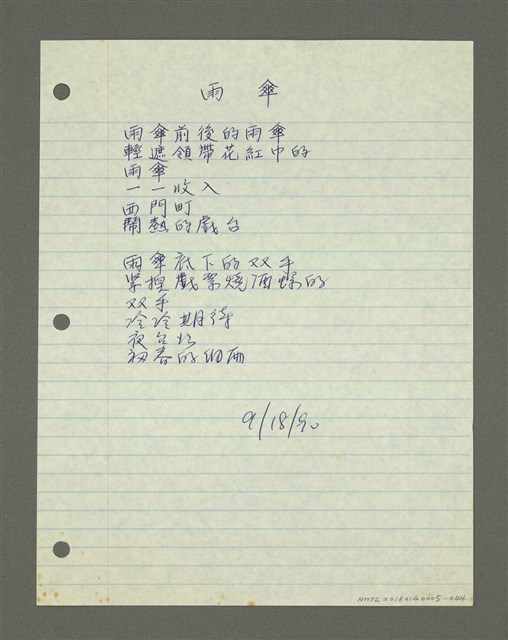 雨 傘
雨傘前後的雨傘
輕遮領帶花紅巾的
雨傘
一一收入
西門町
鬧熱的戲台
雨傘底下的双手
緊捏戲票燒酒螺的
双手
冷冷期待
夜台北
初春的細雨
9/18/90
NMTL20180140005-044